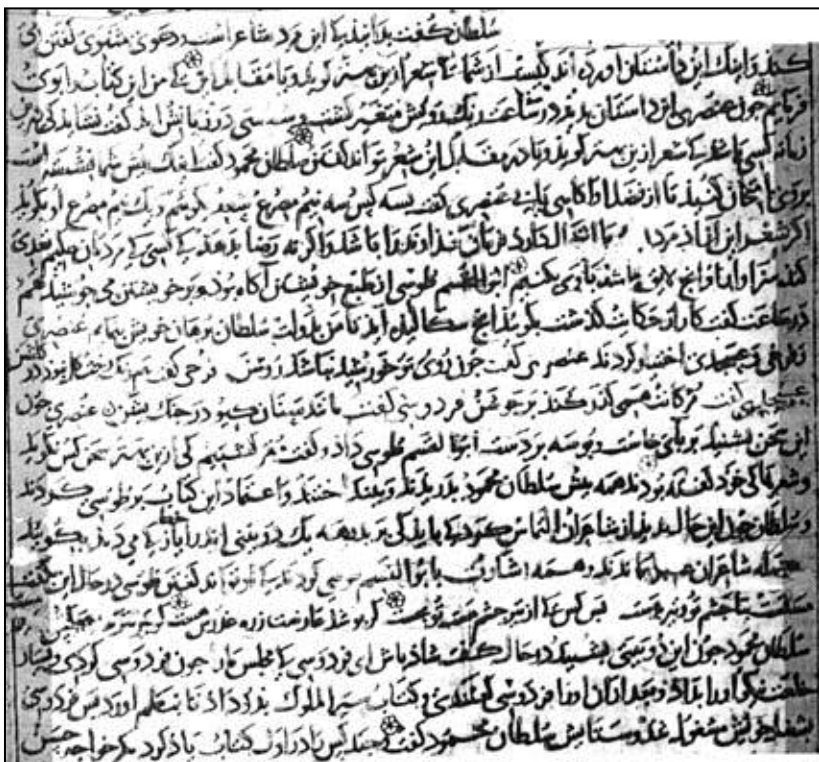 سلطان گفت بدانید کی این مرد شاعر است و دعوی مثنوی گفتن می
کند و اینک این داستان آورده اند کیست از شما تا شعر ازین بهتر گوید و یا مقابل این کی من این کتاب را بوی
فرمایم چون عنصری این داستان بدید در ساعت رنگ رویش متغیر گشت و سستی در زبانش آمد گفت نشاید کی درین
زمانه کسی باشد کی شعر ازین بهتر گوید و یا در مقابله این شعر تواند گفتن سلطان محمود گفت اینک پیش شما نشسته است
بروی امتحان کنید تا از فضل او آگاهی یابید عنصری گفت بسه کس سه نیم مصرع شعر بگوئیم و یک نیم مصرع او بگوید
اگر شعر این آزاد مرد فرمان خداوند را باشد و اگر نه رضا بدهد کی کسی کی مردمان حکیم
کند سزا او را و آنچ لایق باشد با وی بکنیم ابوالقسم طوسی از طبع خویشتن آگاه بود و بر خویشتن می جوشید هم
در ساعت گفت کار از حکایت گذشت بگوئید آنچ سگالیده اید تا من بدولت سلطان برهان خویش بنمایم عنصری
و فرخی و عسجدی اختیار کردند عنصری گفت چون روی تو خورشید نباشد روشن فرخی گفت هم رنگ رخت گل نبود در گلشن
عسجدی گفت مژگانت همی گذر کند بر جوشن فردوسی گفت مانند سنان گیو در جنگ پشن عنصری چون
این سخن بشنید بر پای خاست و بوسه بر دست ابوالقسم طوسی داد و گفت مقر گشتیم کی ازین بهتر سخن کس نگوید
و شعرها کی خود گفته بودند همه پیش سلطان محمود بدریدند و بینداختند و اعتماد این کتاب بر طوسی کردند
و سلطان چون این حال بدید از شاعران التماس کرد کی باید کی بر بدیهه یک دو بیتی اندر خط ایاز کی می دمد بگوئید
جمله شاعران همه بماندند و همه اشارت بابوالقسم طوسی کردند کی او تواند گفتن طوسی در حال این بگفت
مستست بتا چشم تو و تیر بدست بس کس کی از تیر چشم مست تو بخست گر پوشد عارضت زره عذرش هست کز تیر بترسد همه کس
سلطان محمود چون این دو بیتی بشنید در حال گفت شاد باش ای فردوسی کی مجلس ما را چون فردوس کردی و بسیار
خلعت نیکو او را بداد و بعد از آن او را فردوسی و کتاب سیر الملوک بدو داد تا بنظم آورد پس فردوسی
بشغل خویش مشغول شد و ستایش سلطان محمود گفت و چند کس را در اول کتاب یاد کرد یکی خواجه حسن